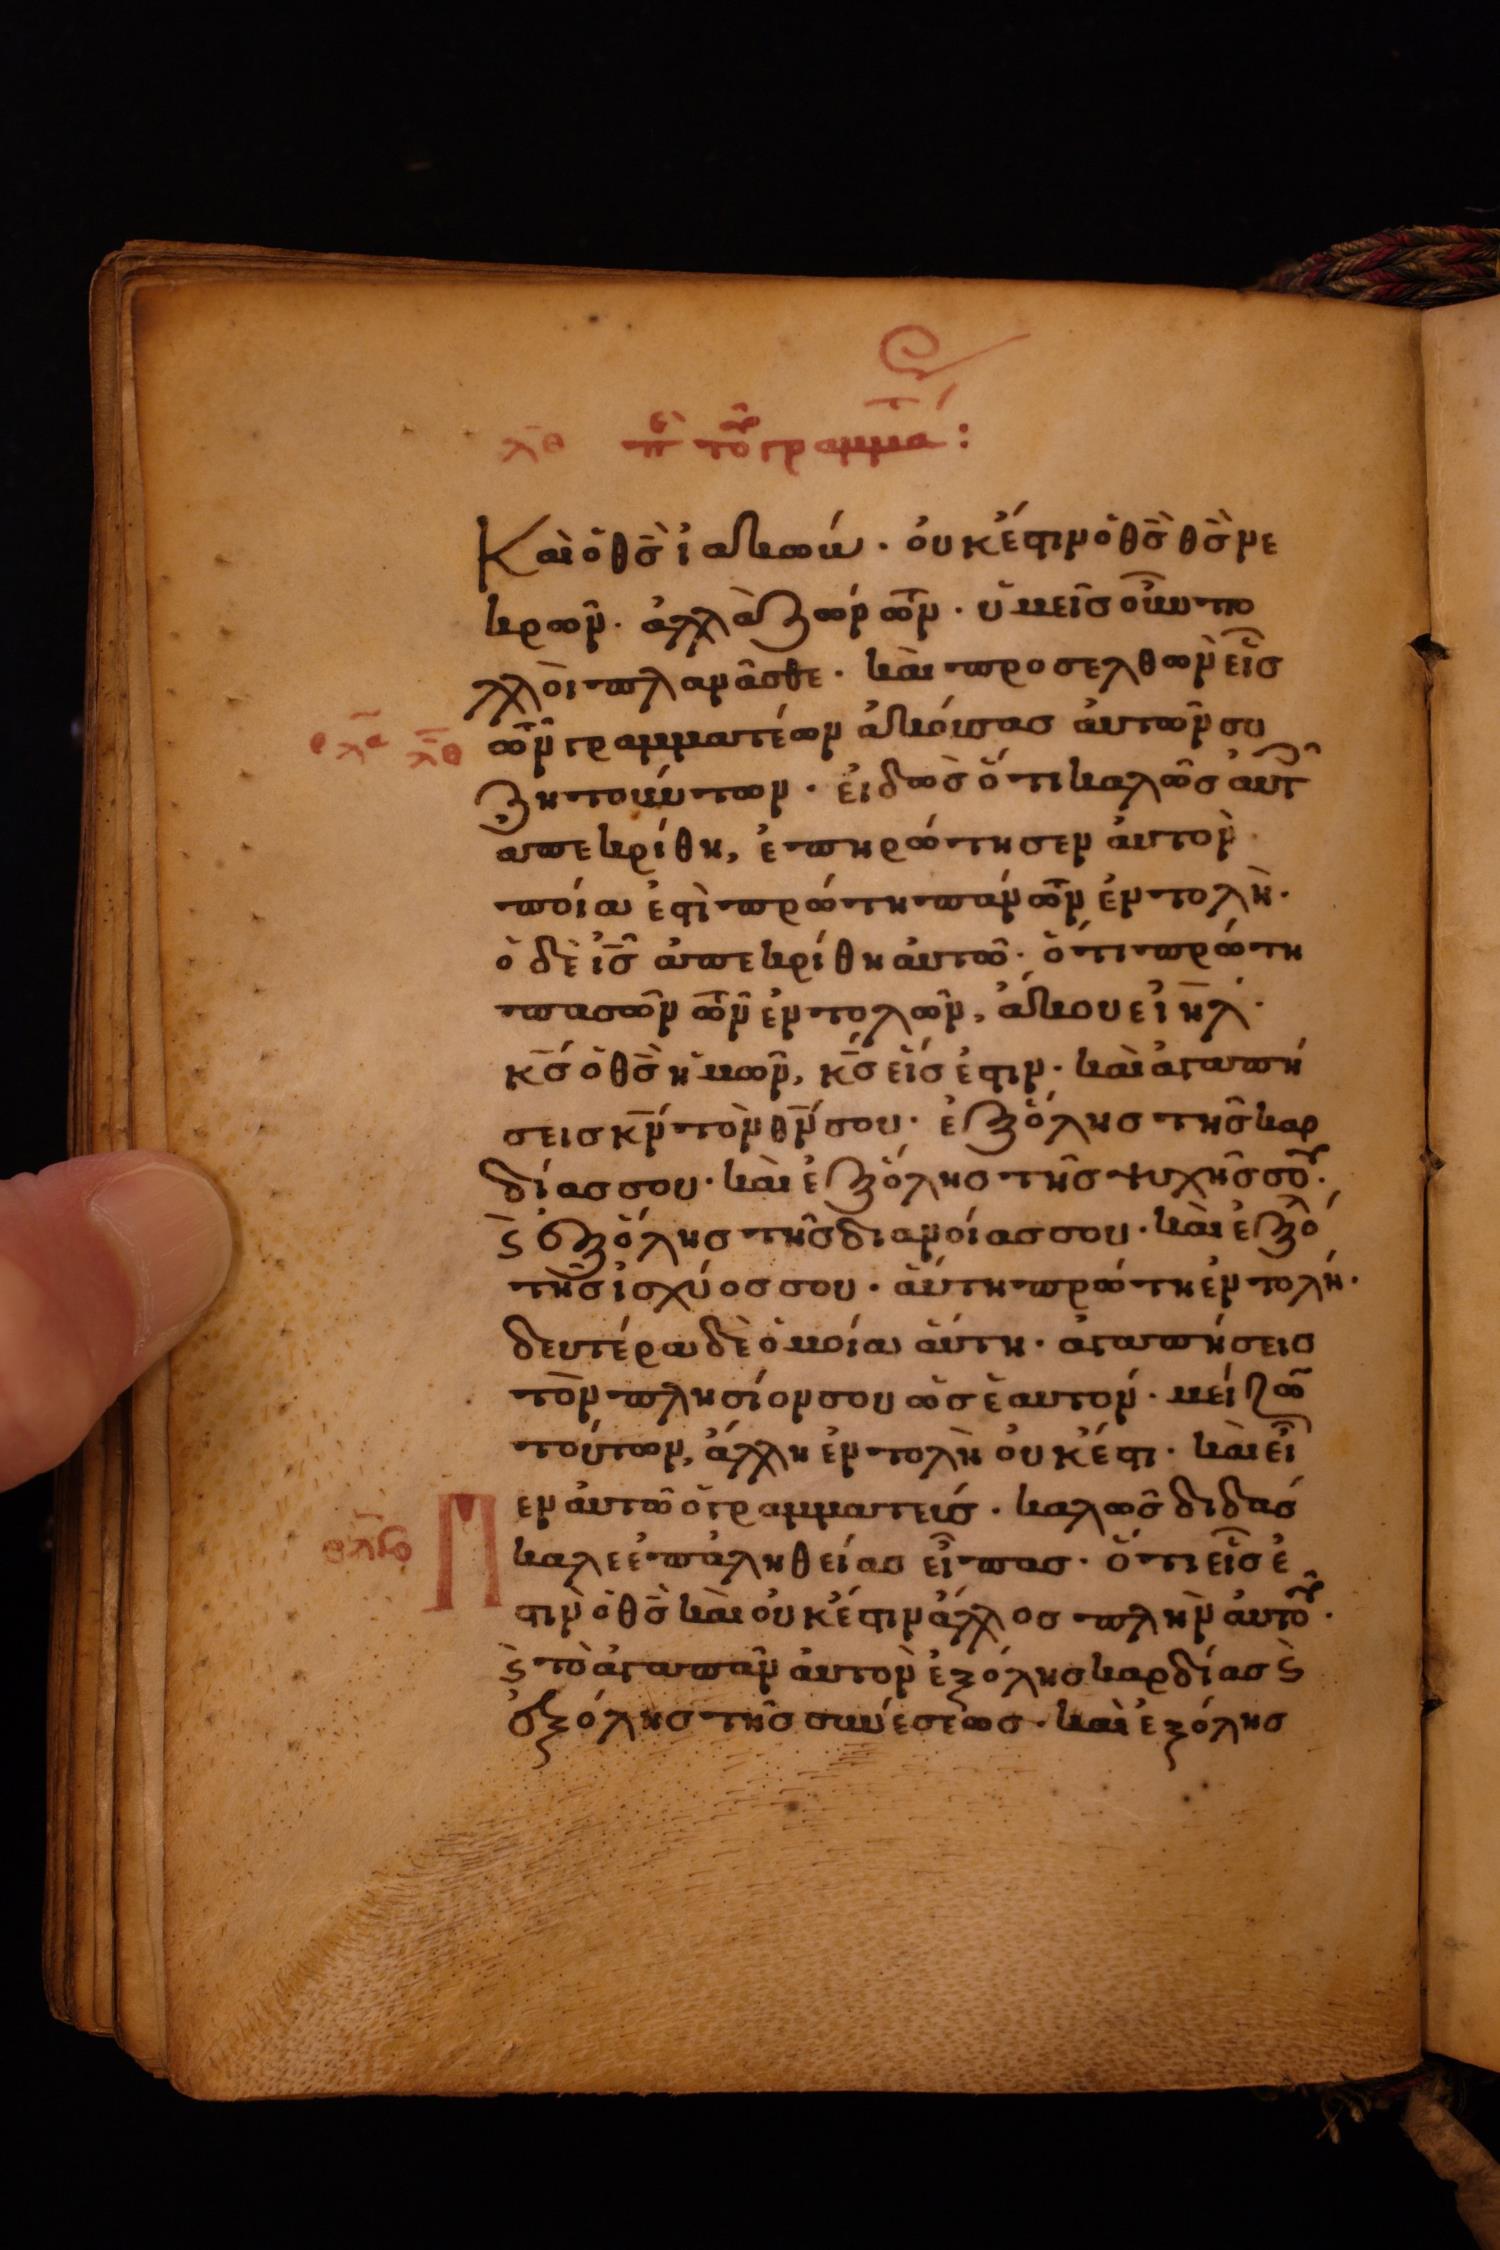 λθ περὶ τοῦ γραμμα :
Καὶ ὁ θς̀ ἰακώβ · οὐκ ἔστιν ὁ θς̀ θς̀ νε
κρῶν · ἀλλὰ ζώντων · ὑμεῖς οὖν πο
λλοὶ πλανᾶσθε · καὶ προσελθὼν εἷς
τῶν γραμματέων ἀκούσας αὐτῶν συ
ζητούντων · εἰδὼς ὅτι καλῶς αὐτ
ἀπεκρίθη, ἐπηρώτησεν αὐτὸν
ποία ἐστὶ πρώτη πάντων ἐντολὴ ·
ὁ δὲ ις̄ ἀπεκρίθη αὐτῶ · ὅτι πρώτη
πασῶν τῶν ἐντολῶν, ἄκουε ιηλ̄ ·
κς̄ ὁ θς̄ ἡμῶν, κς̄ εἷς ἐστιν · καὶ ἀγαπή
σεις κν̄ τὸν θν̄ σου · ἐξ ὅλης τῆς καρ
δίας σου · καὶ ἐξ ὅλης τῆς ψυχῆς σου ·
ϛ̀ ἐξ ὅλης τῆς διανοίας σου · καὶ ἐξ ὅλ
τῆς ἰσχύος σου · αὕτη πρώτη ἐντολή ·
δευτέρα δὲ ὁμοία αὕτη · ἀγαπήσεις
τὸν πλησίον σου ὡς ἑαυτόν · μείζω
τούτων, ἄλλη ἐντολὴ οὐκ ἔστι · καὶ εἶ
εν αὐτῶ ὁ γραμματεύς · καλῶς διδάσ
καλε ἐπ' ἀληθείας εἶπας · ὅτι εἷς ἐ
στιν ὁ θς̄ καὶ οὐκ ἔστιν ἄλλος πλὴν αὐτοῦ ·
ϛ̀ τὸ ἀγαπᾶν αὐτὸν ἐξ ὅλης καρδίας ϛ̀
ἐξ ὅλης τῆς συνέσεως · καὶ ἐξ ὅλης